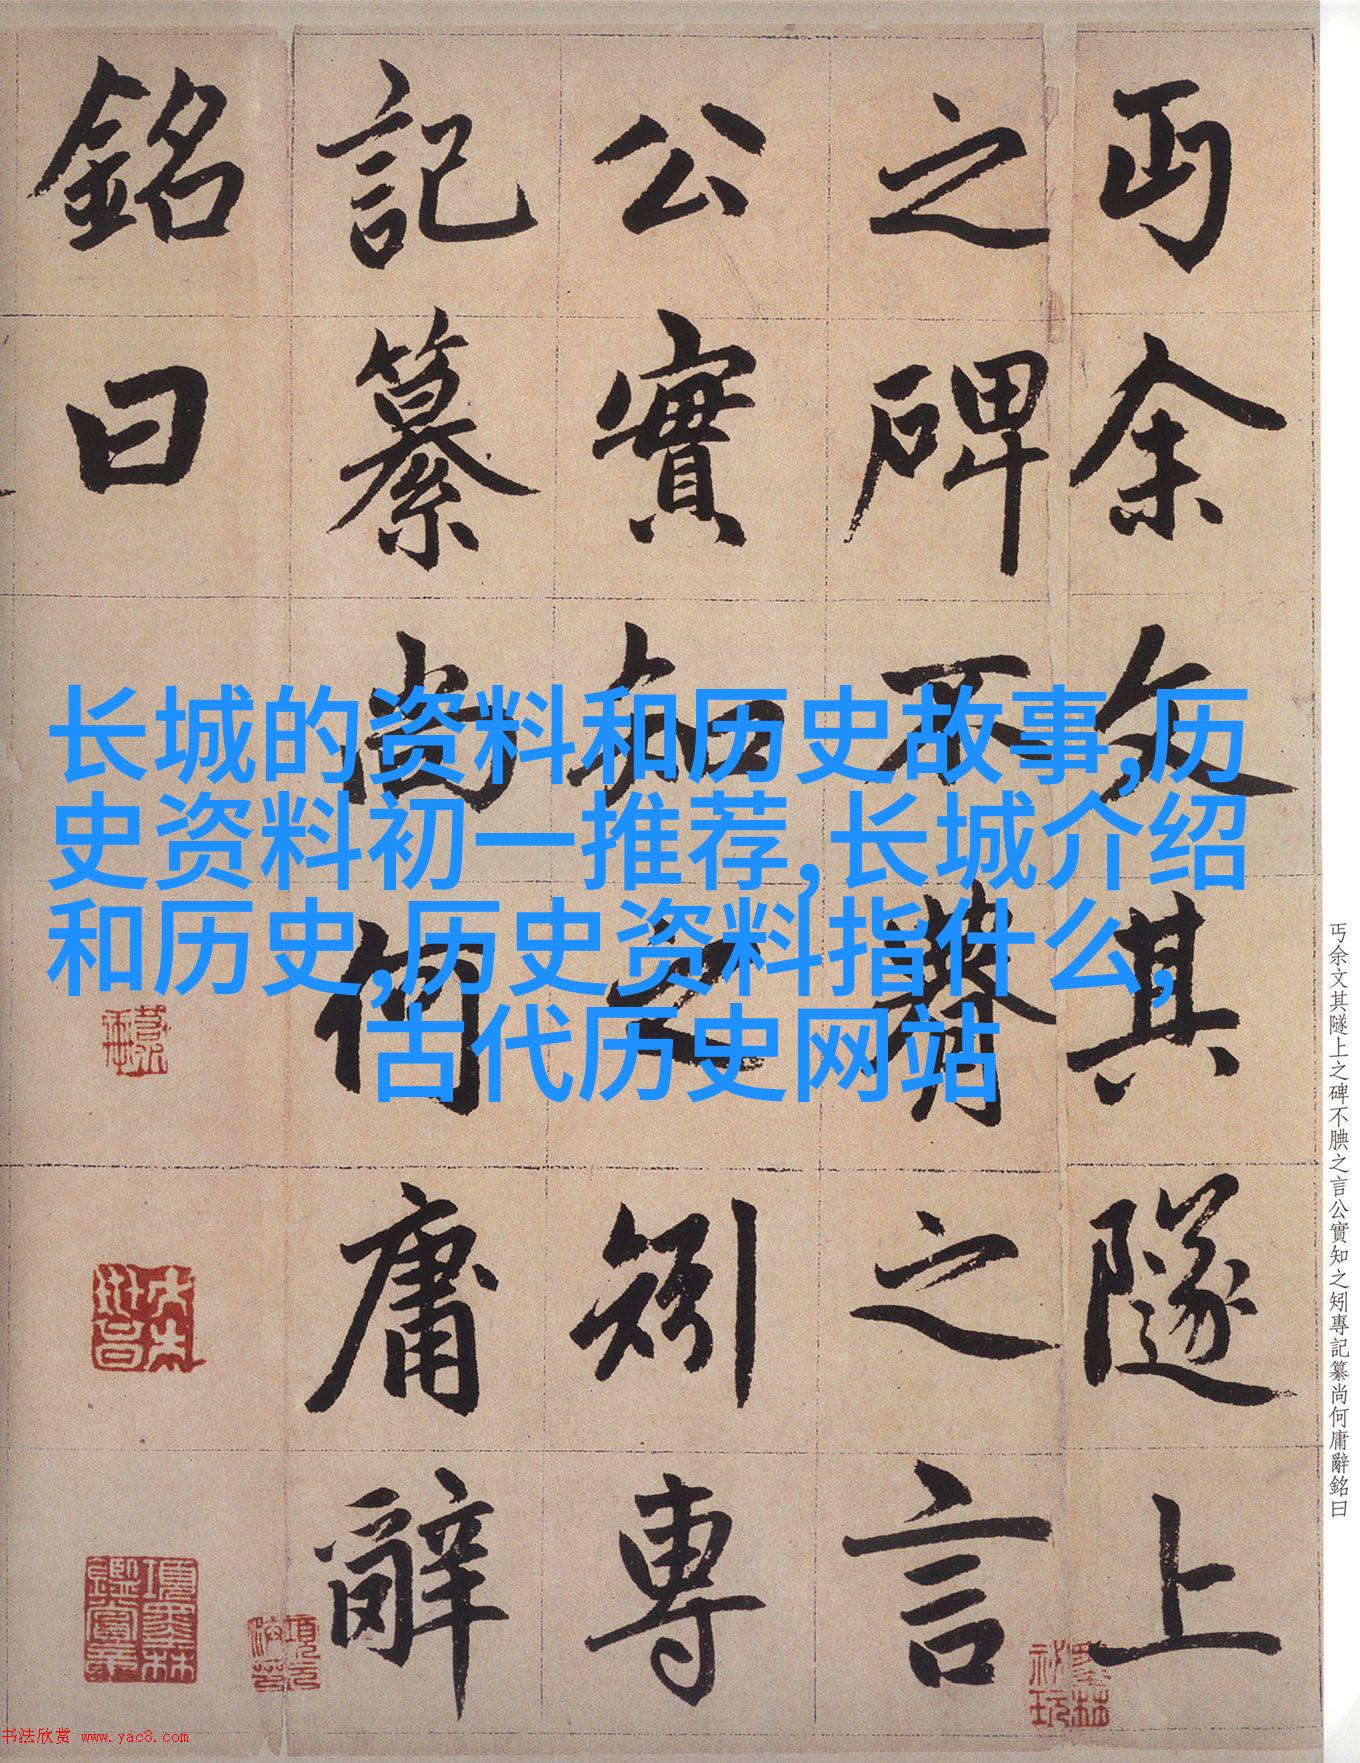 丐余文其隧上
之碑不腆之言
公實知之矧專
記纂尚何庸辭
銘曰
长城的资料和历史故事,历
史资料初一推荐,长城介绍
和历史,历史资料指什么,
古代历史网站
丐余文其隧上之碑不腆之言公實知之矧專記纂尚何庸辭銘曰
項墨林鑑賞章
书法欣赏 www.yac8.com